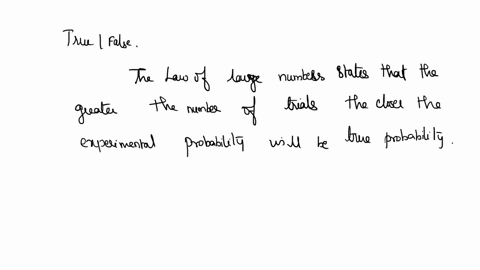 True | False.
The Law of large numbers states that the
greater the number of trials the closer the
experimental probability will be true probability.